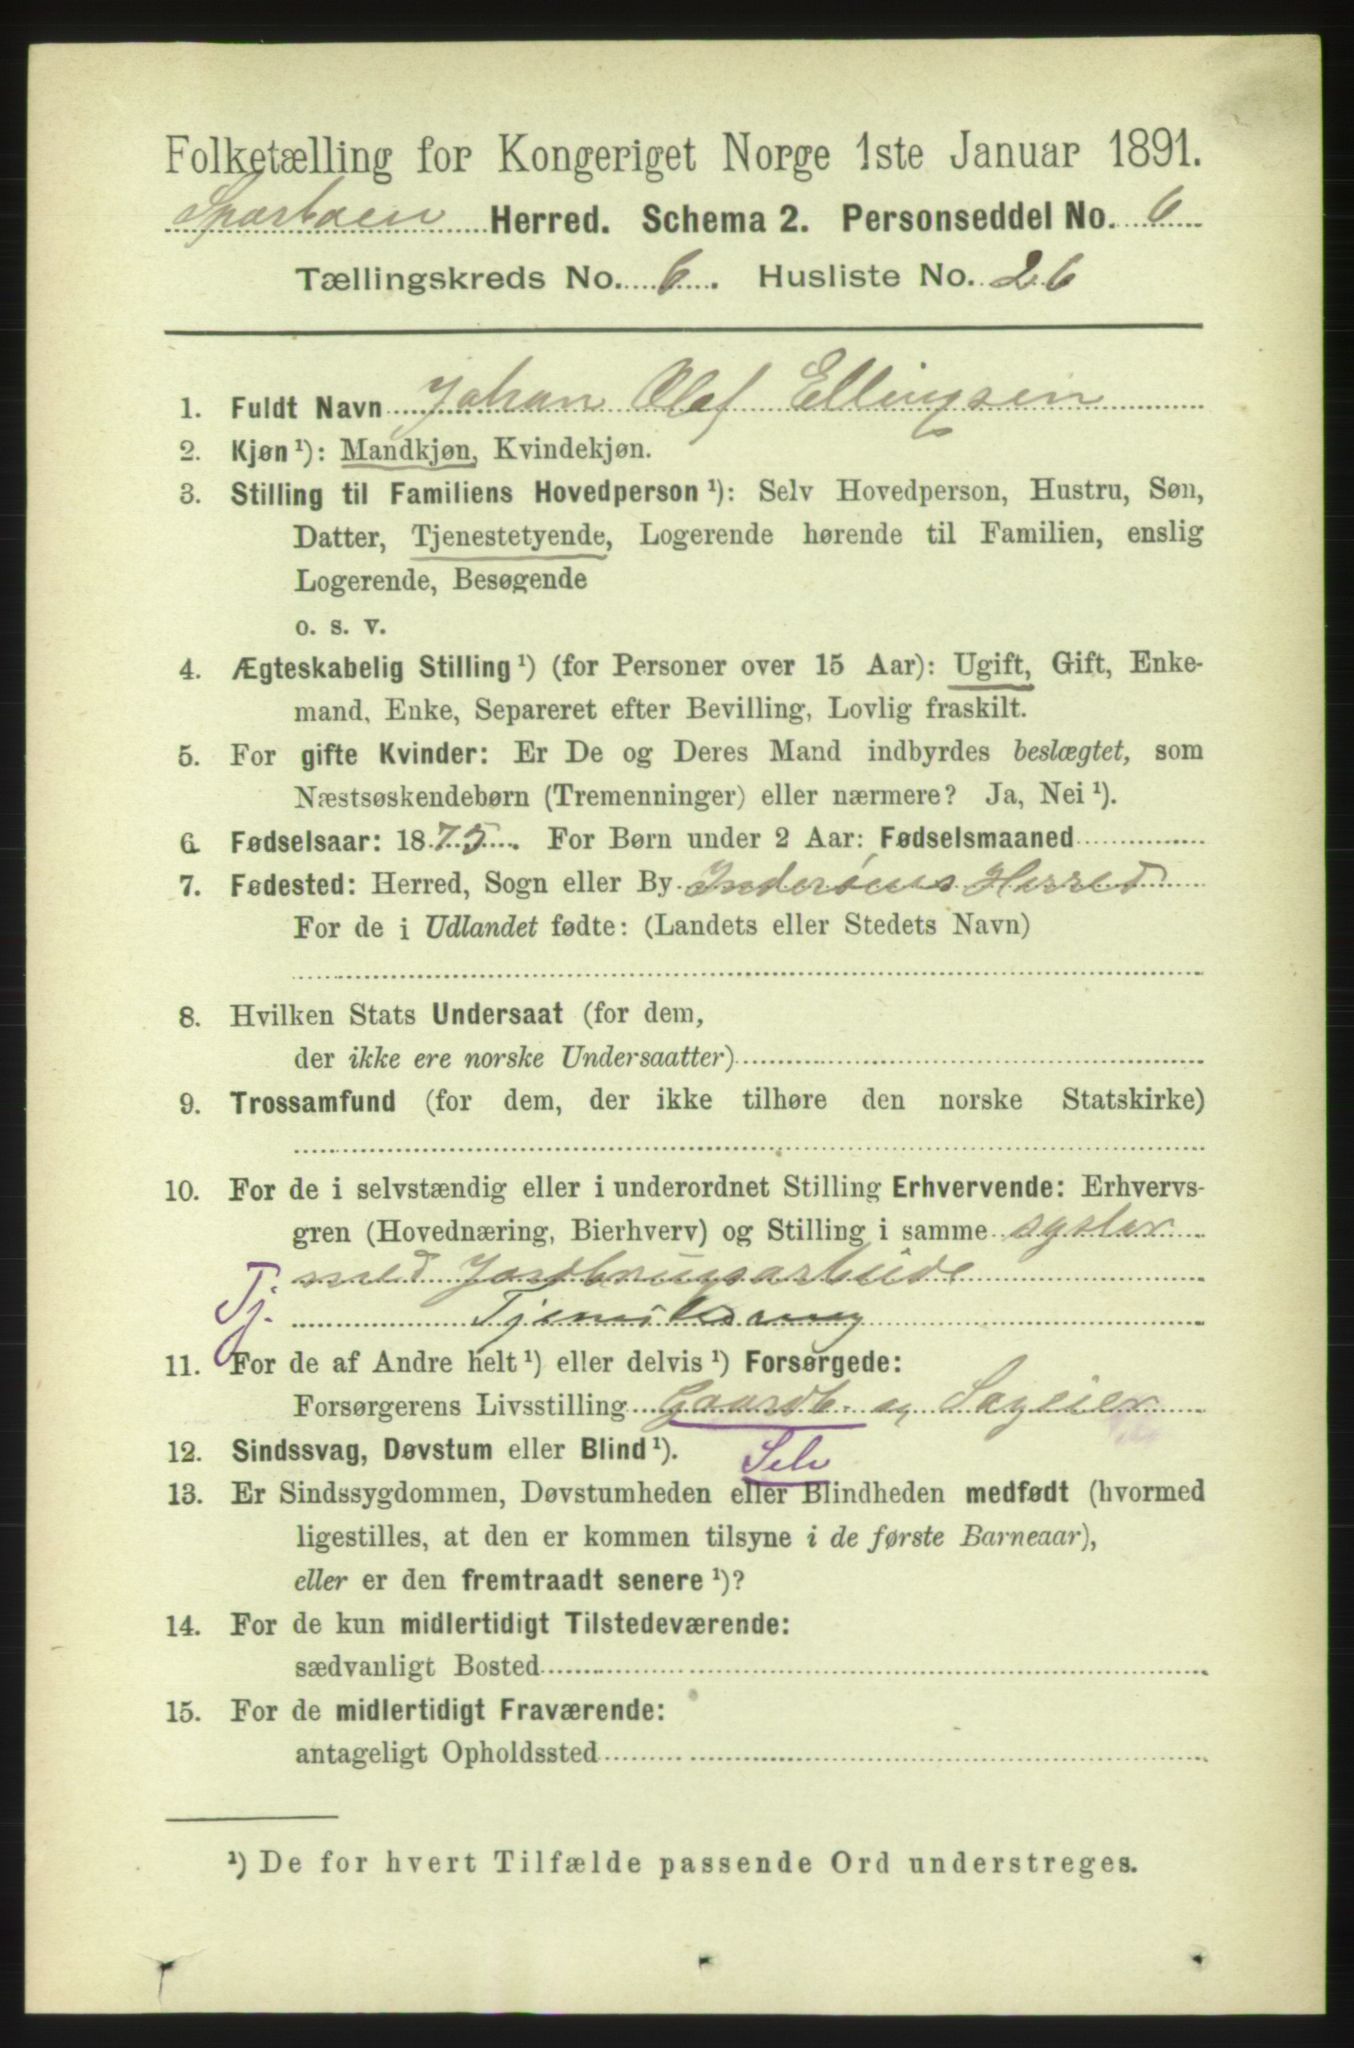 Folketælling for Kongeriget Norge 1ste Januar 1891.
Sparbuen Herred. Schema 2. Personseddel No. 6
Tællingskreds No. 6. Husliste No. 26
1. Fuldt Navn Johan Olaf Ellingsen
2. Kjøn ¹): Mandkjøn, Kvindekjøn.
3. Stilling til Familiens Hovedperson ¹): Selv Hovedperson, Hustru, Søn,
Datter, Tjenestetyende, Logerende hørende til Familien, enslig
Logerende, Besøgende
o. s. v.
4. Ægteskabelig Stilling ¹) (for Personer over 15 Aar): Ugift, Gift, Enke-
mand, Enke, Separeret efter Bevilling, Lovlig fraskilt.
5. For gifte Kvinder: Er De og Deres Mand indbyrdes beslægtet, som
Næstsøskendebørn (Tremenninger) eller nærmere? Ja, Nei ¹).
6. Fødselsaar: 1875. For Børn under 2 Aar: Fødselsmaaned
7. Fødested: Herred, Sogn eller By Inderøens Herred
For de i Udlandet fødte: (Landets eller Stedets Navn)
8. Hvilken Stats Undersaat (for dem,
der ikke ere norske Undersaatter)
9. Trossamfund (for dem, der ikke tilhøre den norske Statskirke)
10. For de i selvstændig eller i underordnet Stilling Erhvervende: Erhvervs-
gren (Hovednæring, Bierhverv) og Stilling i samme sysler
med Jordbrugsarbeide
Tj. Tjenestedreng
11. For de af Andre helt ¹) eller delvis ¹) Forsørgede:
Forsørgerens Livsstilling Gaardb. og Sageier
12. Sindssvag, Døvstum eller Blind ¹). Selv
13. Er Sindssygdommen, Døvstumheden eller Blindheden medfødt (hvormed
ligestilles, at den er kommen tilsyne i de første Barneaar),
eller er den fremtraadt senere ¹)?
14. For de kun midlertidigt Tilstedeværende:
sædvanligt Bosted
15. For de midlertidigt Fraværende:
antageligt Opholdssted
¹) De for hvert Tilfælde passende Ord understreges.